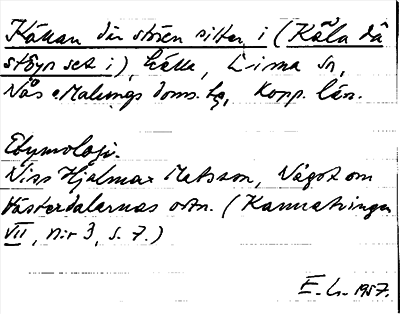 Källan där stören sitter i (Kä̃la då
stöyr set i), källa, Lima sn,
Nås o Malungs doms. hg, Kopp. län.
Etymologi.
Niss Hjalmar Matsson, Något om
Västerdalarnas ortn. (Kammakaringen
VII, n:r 3, s. 7.)
E. L. 1957.